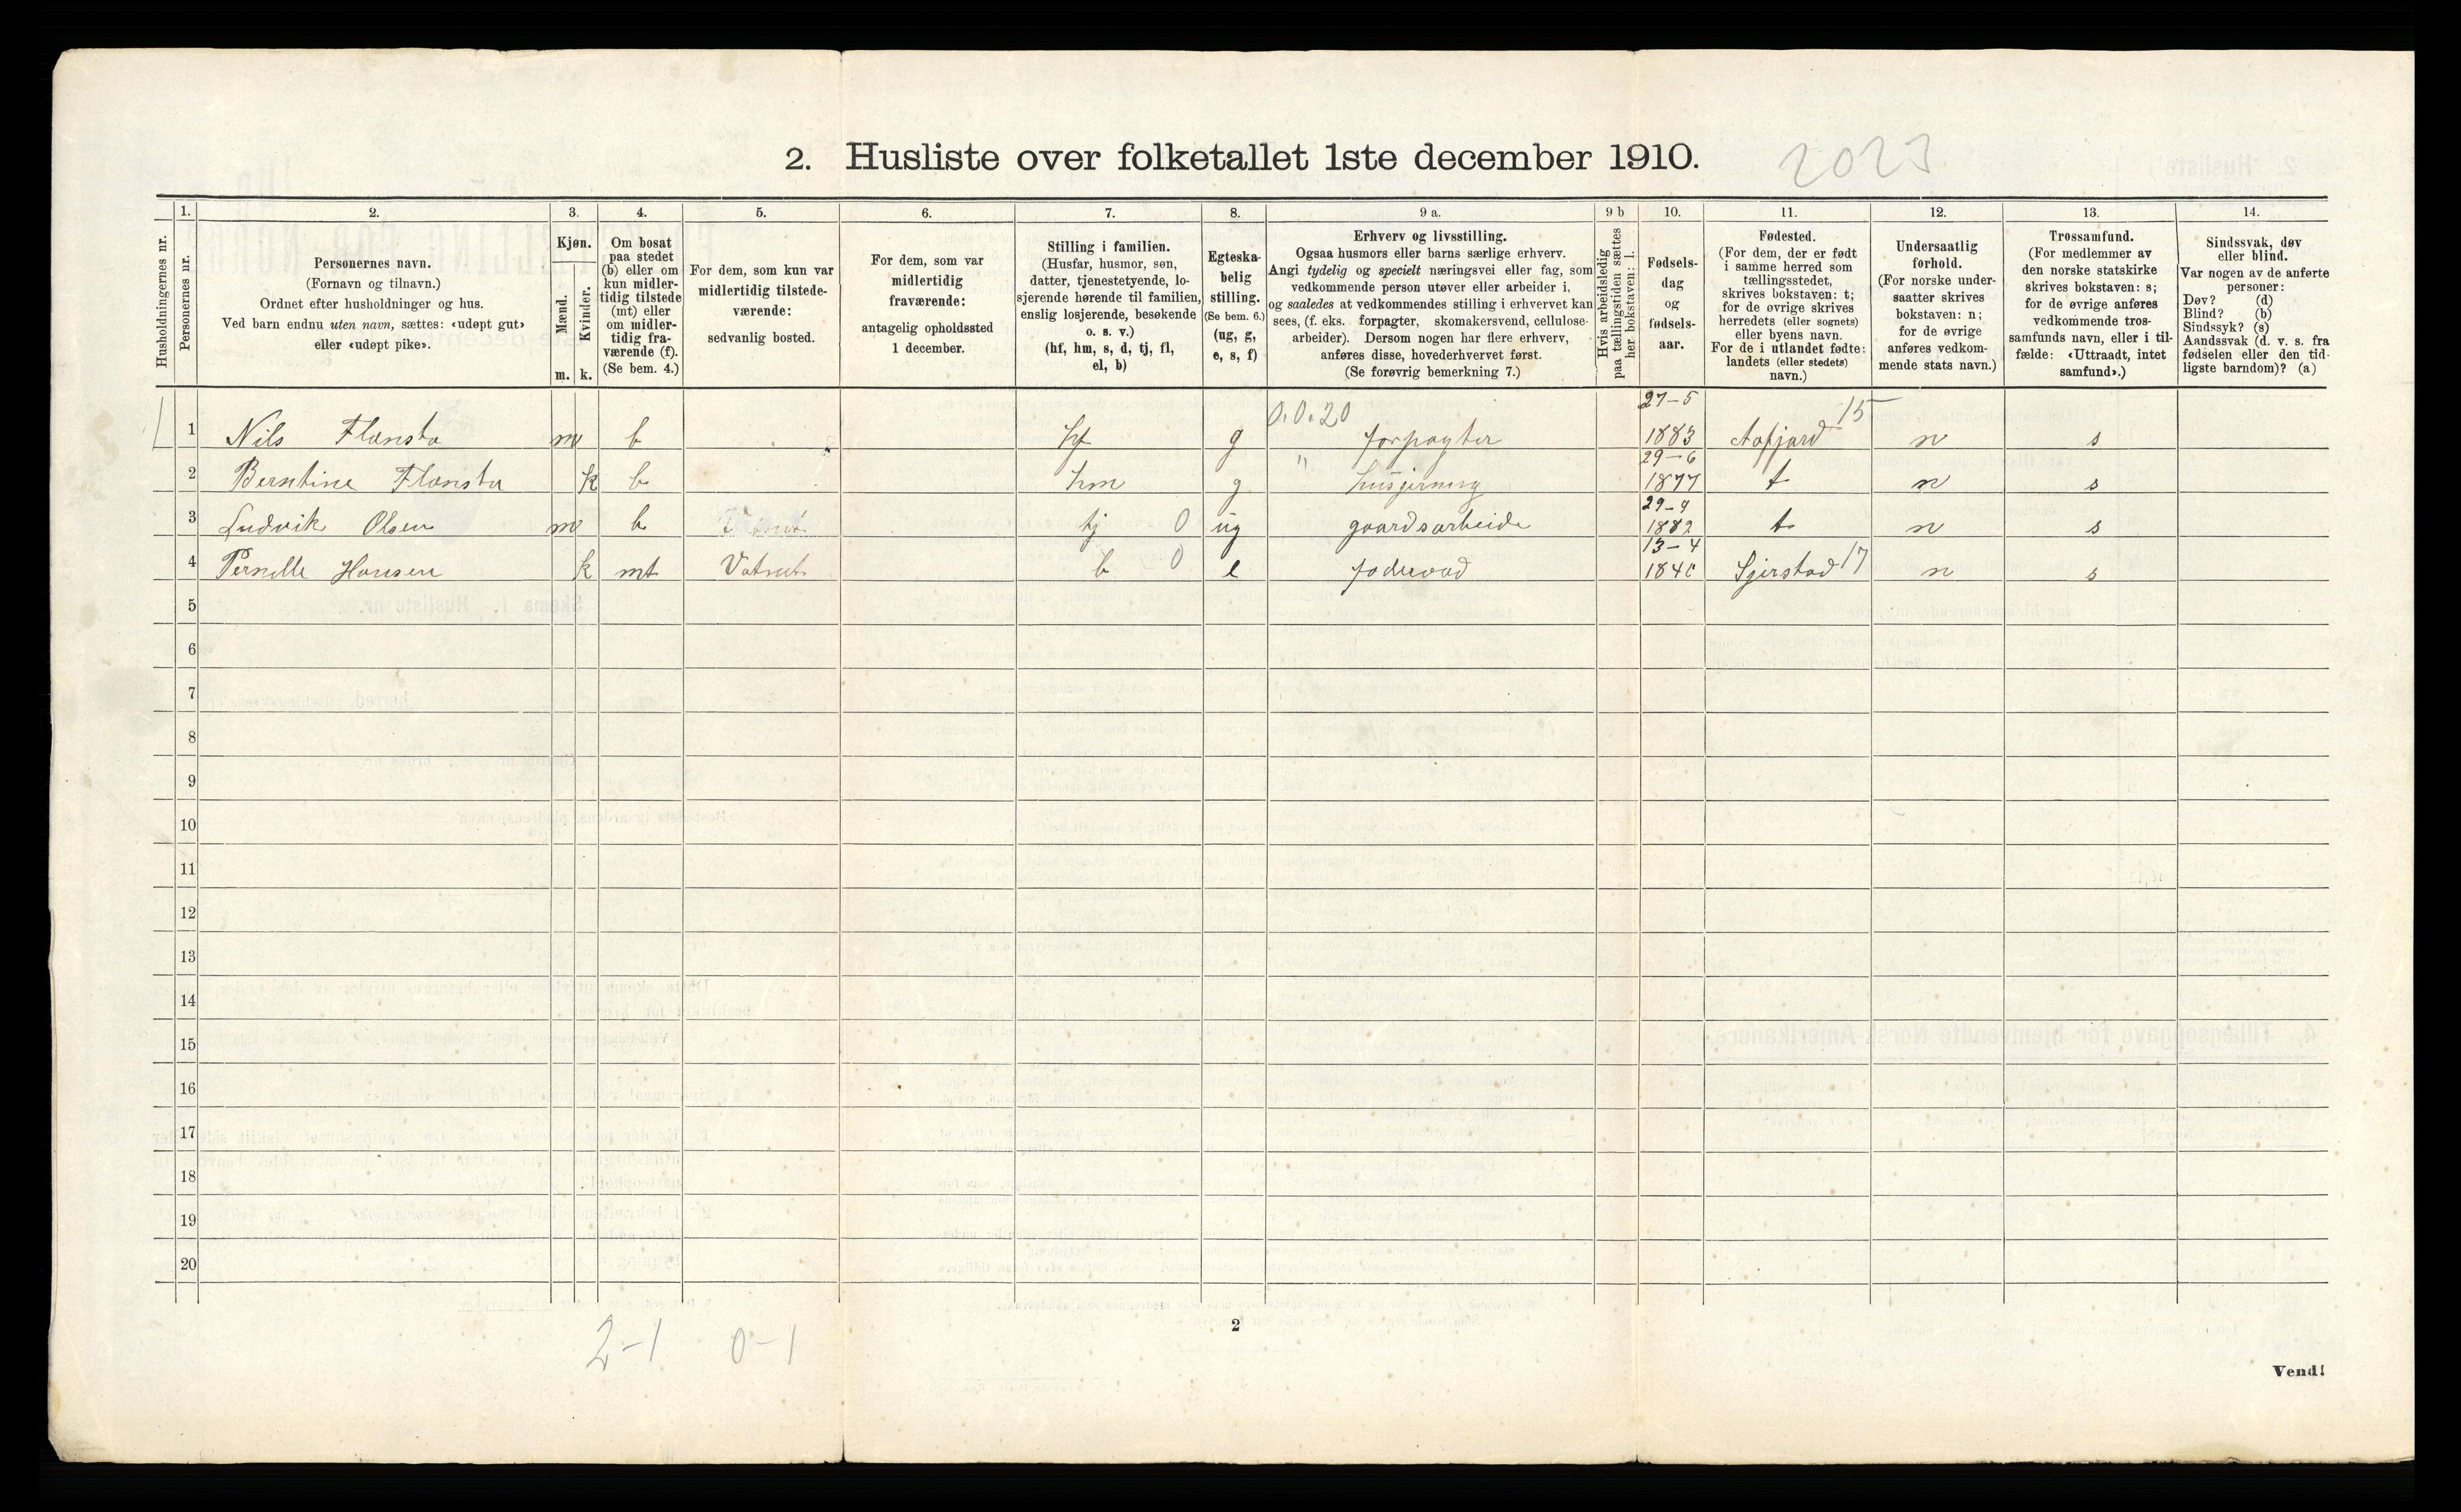 2. Husliste over folketallet 1ste december 1910.
2023
Husholdningernes nr.
1.
Personernes nr.
2.
Personernes navn.
(Fornavn og tilnavn.)
Ordnet efter husholdninger og hus.
Ved barn endnu uten navn, sættes: «udøpt gut»
eller «udøpt pike».
3.
Kjøn.
Mænd.
Kvinder.
m. k.
4.
Om bosat
paa stedet
(b) eller om
kun midler-
tidig tilstede
(mt) eller
om midler-
tidig fra-
værende (f).
(Se bem. 4.)
5.
For dem, som kun var
midlertidig tilstede-
værende:
sedvanlig bosted.
6.
For dem, som var
midlertidig
fraværende:
antagelig opholdssted
1 december.
7.
Stilling i familien.
(Husfar, husmor, søn,
datter, tjenestetyende, lo-
sjerende hørende til familien,
enslig losjerende, besøkende
o. s. v.)
(hf, hm, s, d, tj, fl,
el, b)
8.
Egteska-
belig
stilling.
(Se bem. 6.)
(ug, g,
e, s, f)
9 a.
Erhverv og livsstilling.
Ogsaa husmors eller barns særlige erhverv.
Angi tydelig og specielt næringsvei eller fag, som
vedkommende person utøver eller arbeider i,
og saaledes at vedkommendes stilling i erhvervet kan
sees, (f. eks. forpagter, skomakersvend, cellulose-
arbeider). Dersom nogen har flere erhverv,
anføres disse, hovederhvervet først.
(Se forøvrig bemerkning 7.)
9 b
Hvis arbeidsledig
paa tællingstiden sættes
her bokstaven: l.
10.
Fødsels-
dag
og
fødsels-
aar.
11.
Fødested.
(For dem, der er født
i samme herred som
tællingsstedet,
skrives bokstaven: t;
for de øvrige skrives
herredets (eller sognets)
eller byens navn.
For de i utlandet fødte:
landets (eller stedets)
navn.)
12.
Undersaatlig
forhold.
(For norske under-
saatter skrives
bokstaven: n;
for de øvrige
anføres vedkom-
mende stats navn.)
13.
Trossamfund.
(For medlemmer av
den norske statskirke
skrives bokstaven: s;
for de øvrige anføres
vedkommende tros-
samfunds navn, eller i til-
fælde: «Uttraadt, intet
samfund».)
14.
Sindssvak, døv
eller blind.
Var nogen av de anførte
personer:
Døv? (d)
Blind? (b)
Sindssyk? (s)
Aandssvak (d. v. s. fra
fødselen eller den tid-
ligste barndom)? (a)
0.0.20 27-5 15
1 Nils Flansta m b hf g forpagter 1883 Aafjord n s
" 29-6
2 Berntine Flansta k b hm g husgjerning 1877 t n s
29-9
3 Ludvik Olsen m b tj 0 ug gaardsarbeide 1882 t n s
13-4
4 Pernille Hansen k mt b 0 e føderaad Stjerstad 17 n s
5
6
7
8
9
10
11
12
13
14
15
16
17
18
19
20
2-1 0-1
2
Vend!